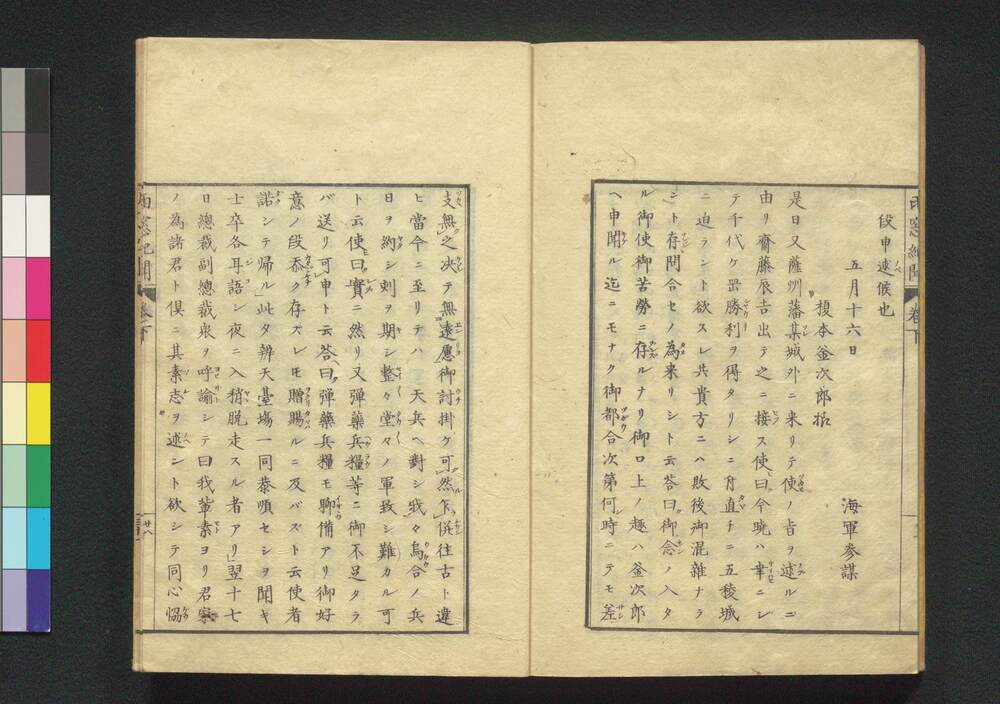 段申述候也
五月十六日
榎本釜次郎拓
海軍参謀
是日又薩州藩某城外ニ来リテ使ノ旨ヲ述ルニ
由リ齋藤辰吉出テ之ニ接ス使曰今暁ハ幸ニシ
テ千代ケ岡勝利ヲ得タリシニ付直チニ五稜城
ニ迫ラント欲スレ共貴方ニハ敗後御混雑ナラ
ント存問合セノ為来リシト云答曰御念ノ入タ
ル御使御苦勞ニ存ルナリ御口上ノ趣ハ釜次郎
ヘ申聞ル迄ニモナク御都合次第何時ニテモ差
支無之決テ無遠慮御討掛ケ可然乍併往古ト違
ヒ當今ニ至リテハ 天兵ヘ對シ我々烏合ノ兵
日ヲ約シ刻ヲ期シ整々堂々ノ軍致シ難カル可
ト云使曰實ニ然リ又彈藥兵糧等ニ御不足タラ
バ送リ可申ト云答曰彈藥兵糧モ聊備アリ御好
意ノ段忝ク存ズレ𪜈贈賜ルニ及バズト云使者
諾シテ帰ル此夕辨天臺場一同恭順セシヲ聞キ
士卒各耳語シ夜ニ入稍脱走スル者アリ翌十七
日總裁副總裁衆ヲ呼諭シテ曰我輩素ヨリ君家
ノ為諸君ト倶ニ其素志ヲ述ント欲シテ同心恊